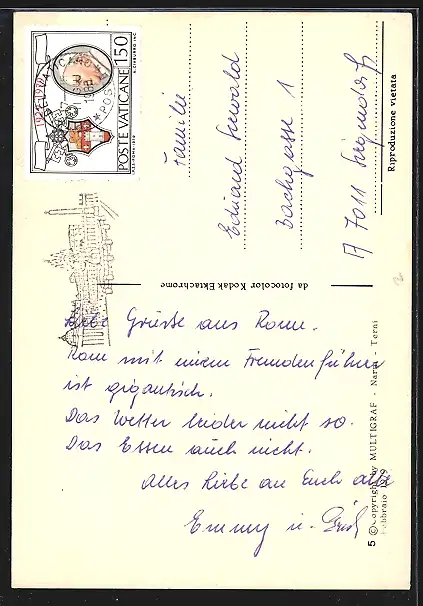 Liebe Grüsse aus Rome.
Rom mit einem Fremdenführer
ist gigantisch.
Das Wetter leider nicht so.
Das Essen auch nicht.
Alles Liebe an Euch alle
Emmy u.
Familie
Eduard
Bachgasse 1
A 7011
150
POSTE VATICANE
da fotocolor Kodak Ektachrome
Riproduzione vietata
5 © Copyright by MULTIGRAF - Narni - Terni
Febbraio 1979